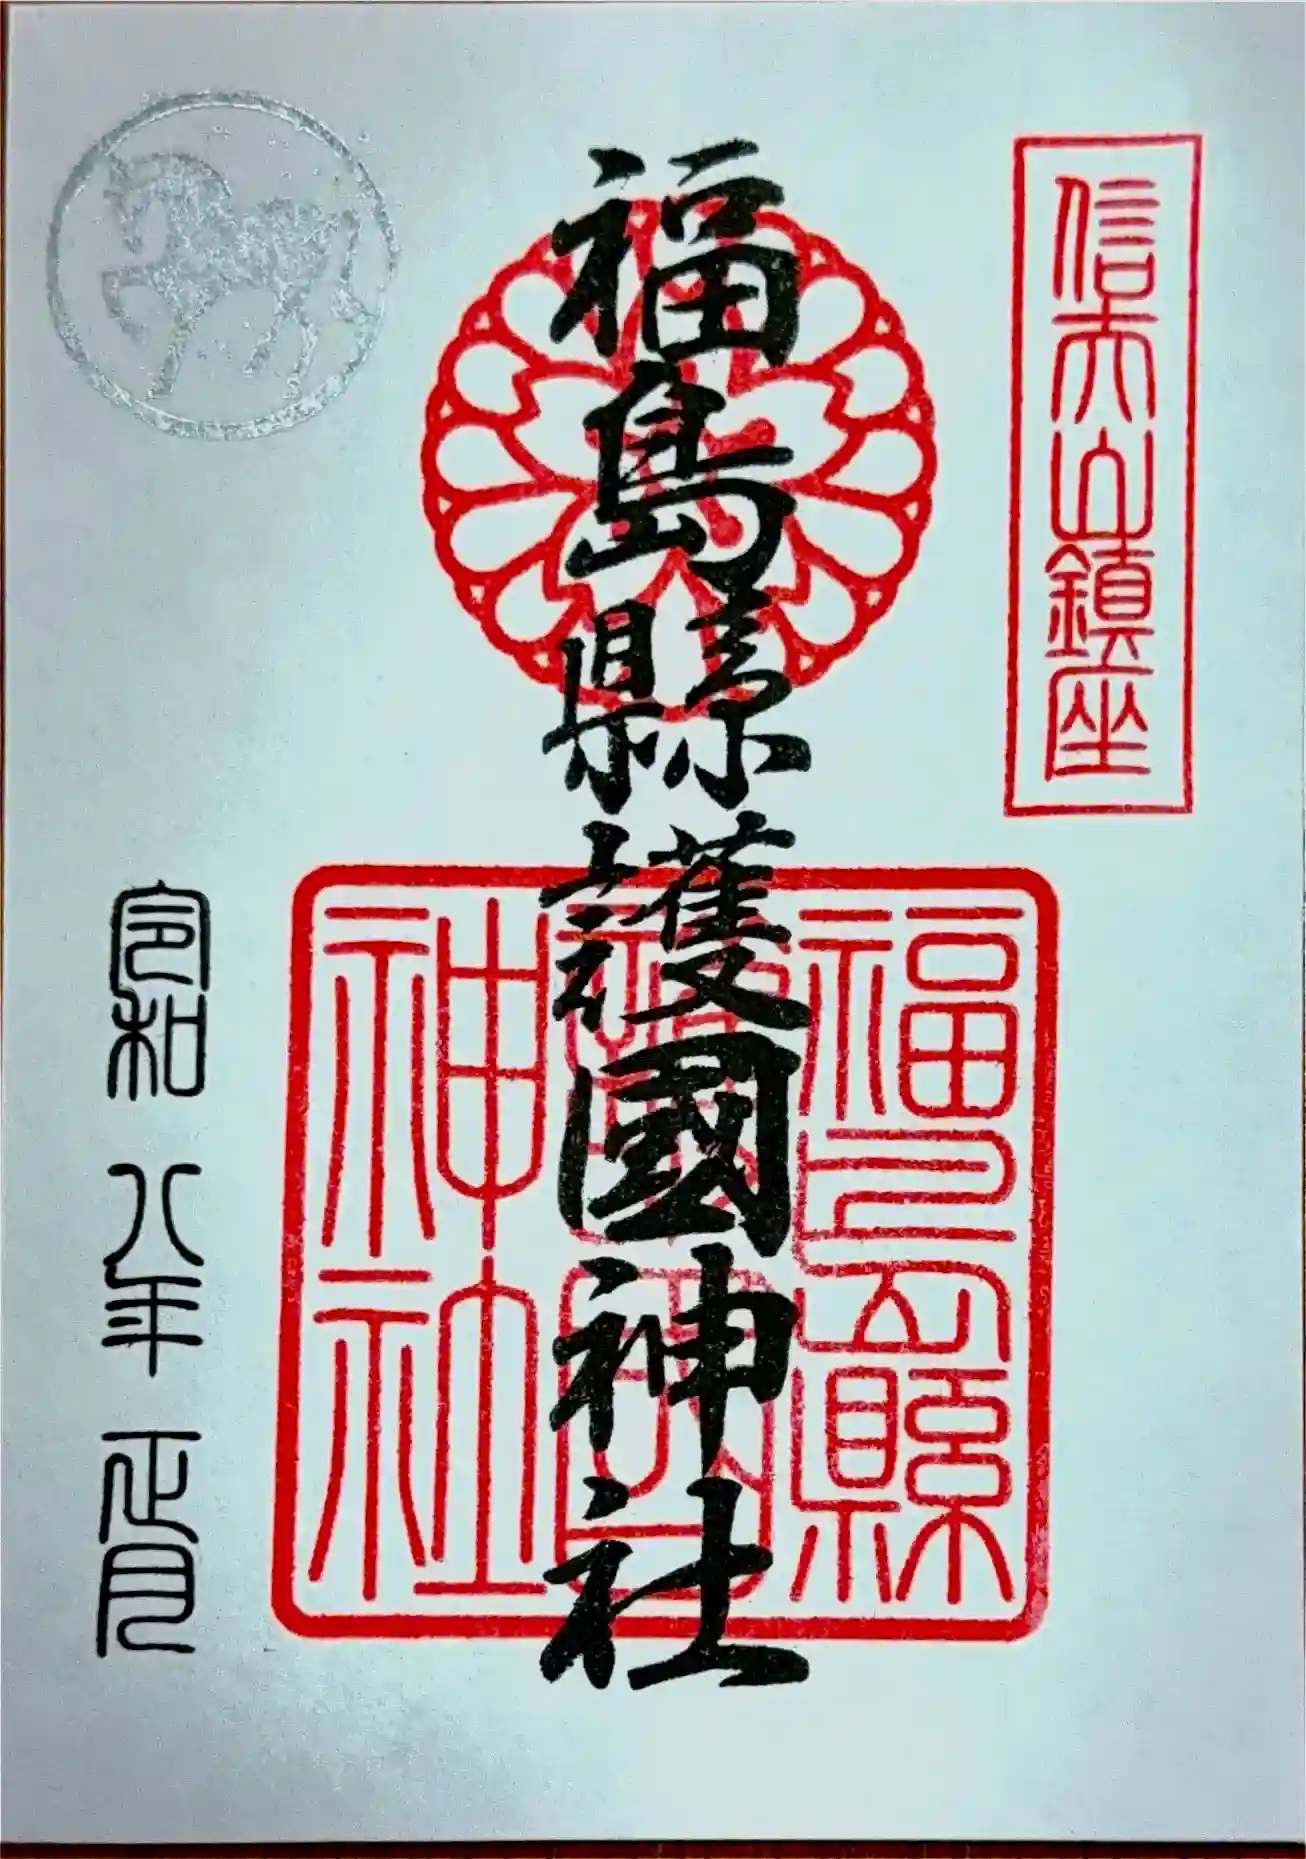 信夫山鎮座
福島縣護國神社
福島縣
護國
神社
令和 八年 正月